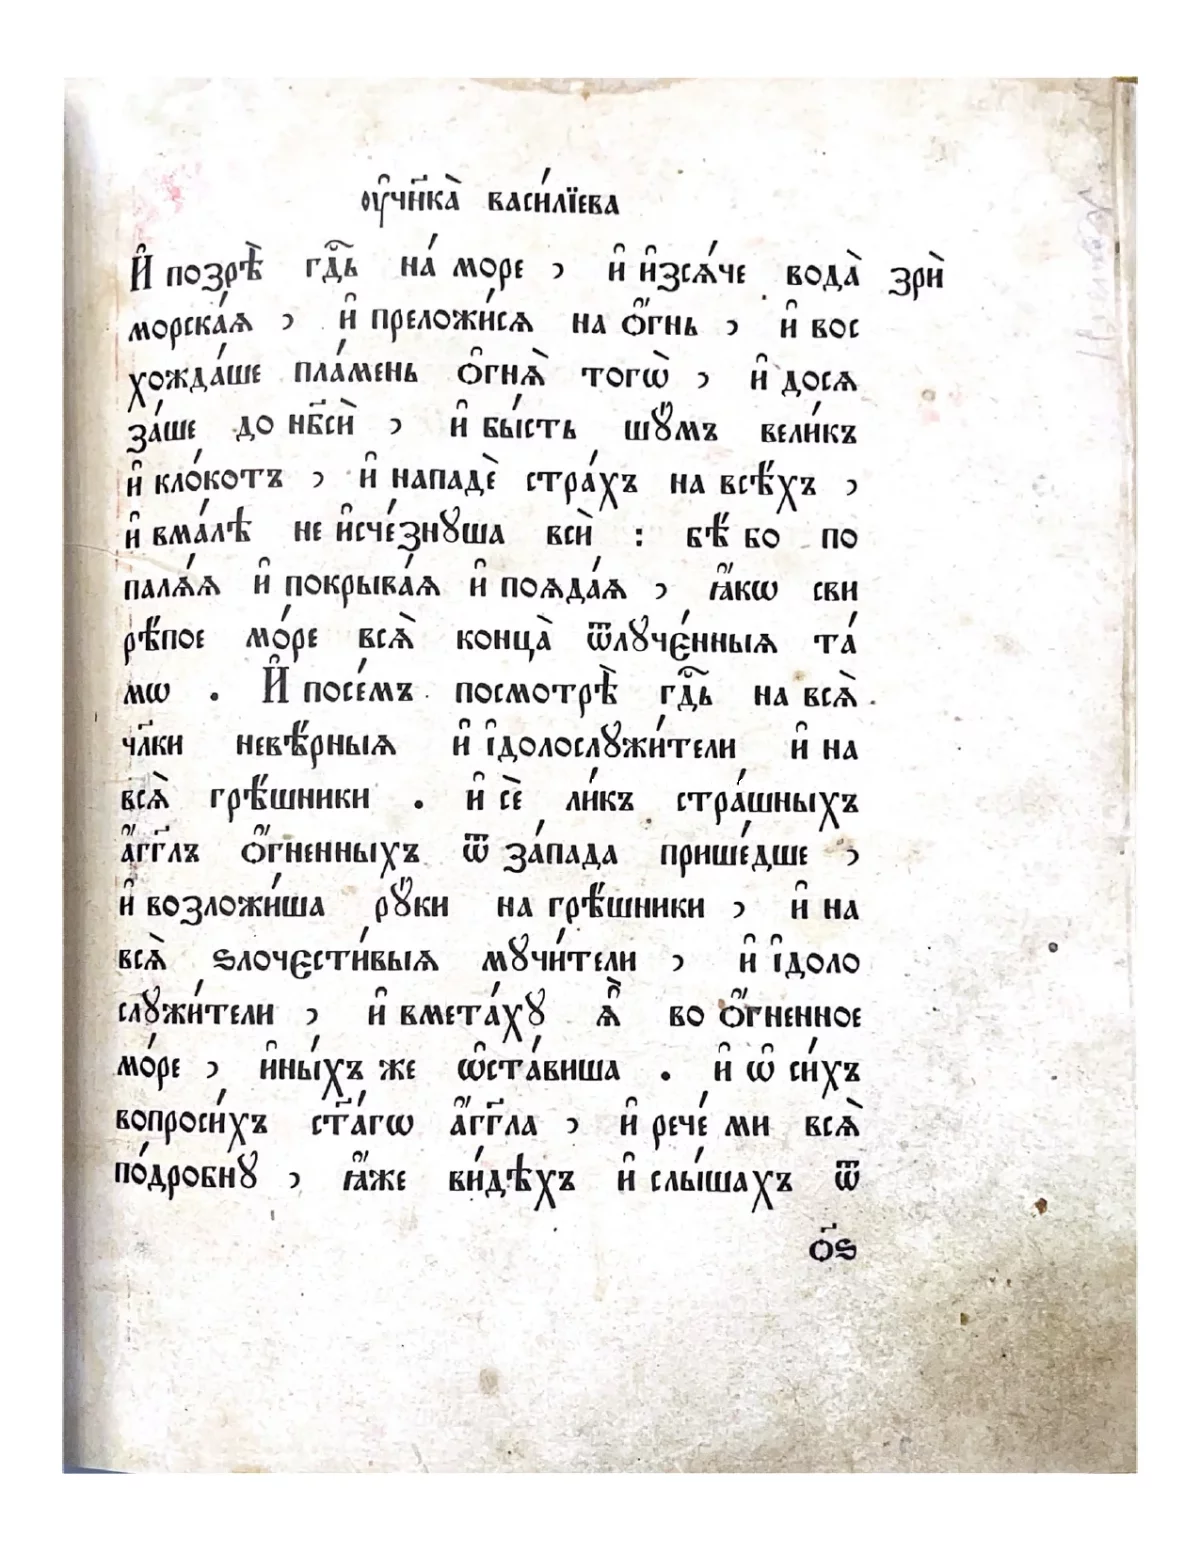 ᲂу҆чн҃ка̀ васи́лїева
И҆ позрѣ̀ гдⷭ҇ь на́ море , и҆ и҆зсѧ́че вода̀ зрѝ
морска́ѧ , и҆ преложи́сѧ на ѻ҆́гнь , и҆ вос
хожда́ше пла́мень ѻ҆гнѧ̀ тогѡ̀ , и҆ досѧ
за́ше до нб҃сѝ , и҆ бы́сть шꙋ́мъ вели́къ
и҆ кло́котъ , и҆ нападѐ стра́хъ на всѣ́хъ ,
и҆ вма́лѣ не и҆сче́знꙋша всѝ : бѣ́ бо по
палѧ́ѧ и҆ покрыва́ѧ и҆ поѧда́ѧ , ꙗ҆́кѡ сви
рѣ́пое мо́ре всѧ̀ конца̀ ѿлꙋче́нныѧ та́
мѡ . И҆ посе́мъ посмотрѣ̀ гдⷭ҇ь на всѧ̀
чл҃ки невѣ́рныѧ и҆ і҆долослꙋжи́тели и҆ на
всѧ̀ грѣ́шники . и҆ сѐ ли́къ стра́шныхъ
а҆́гг҃лъ ѻ҆́гненныхъ ѿ за́пада прише́дше ,
и҆ возложи́ша рꙋ́ки на грѣ́шники , и҆ на
всѧ̀ ѕлочести́выѧ мꙋчи́тели , и҆ і҆доло
слꙋжи́тели , и҆ вмета́хꙋ ѧ҆̀ во ѻ҆́гненное
мо́ре , и҆ны́хъ же ѡ҆ста́виша . и҆ ѡ҆ си́хъ
вопроси́хъ ст҃а́гѡ а҆́гг҃ла , и҆ рече́ ми всѧ̀
по́дробнꙋ , ꙗ҆́же ви́дѣхъ и҆ слы́шахъ ѿ
ѻ҃ѕ